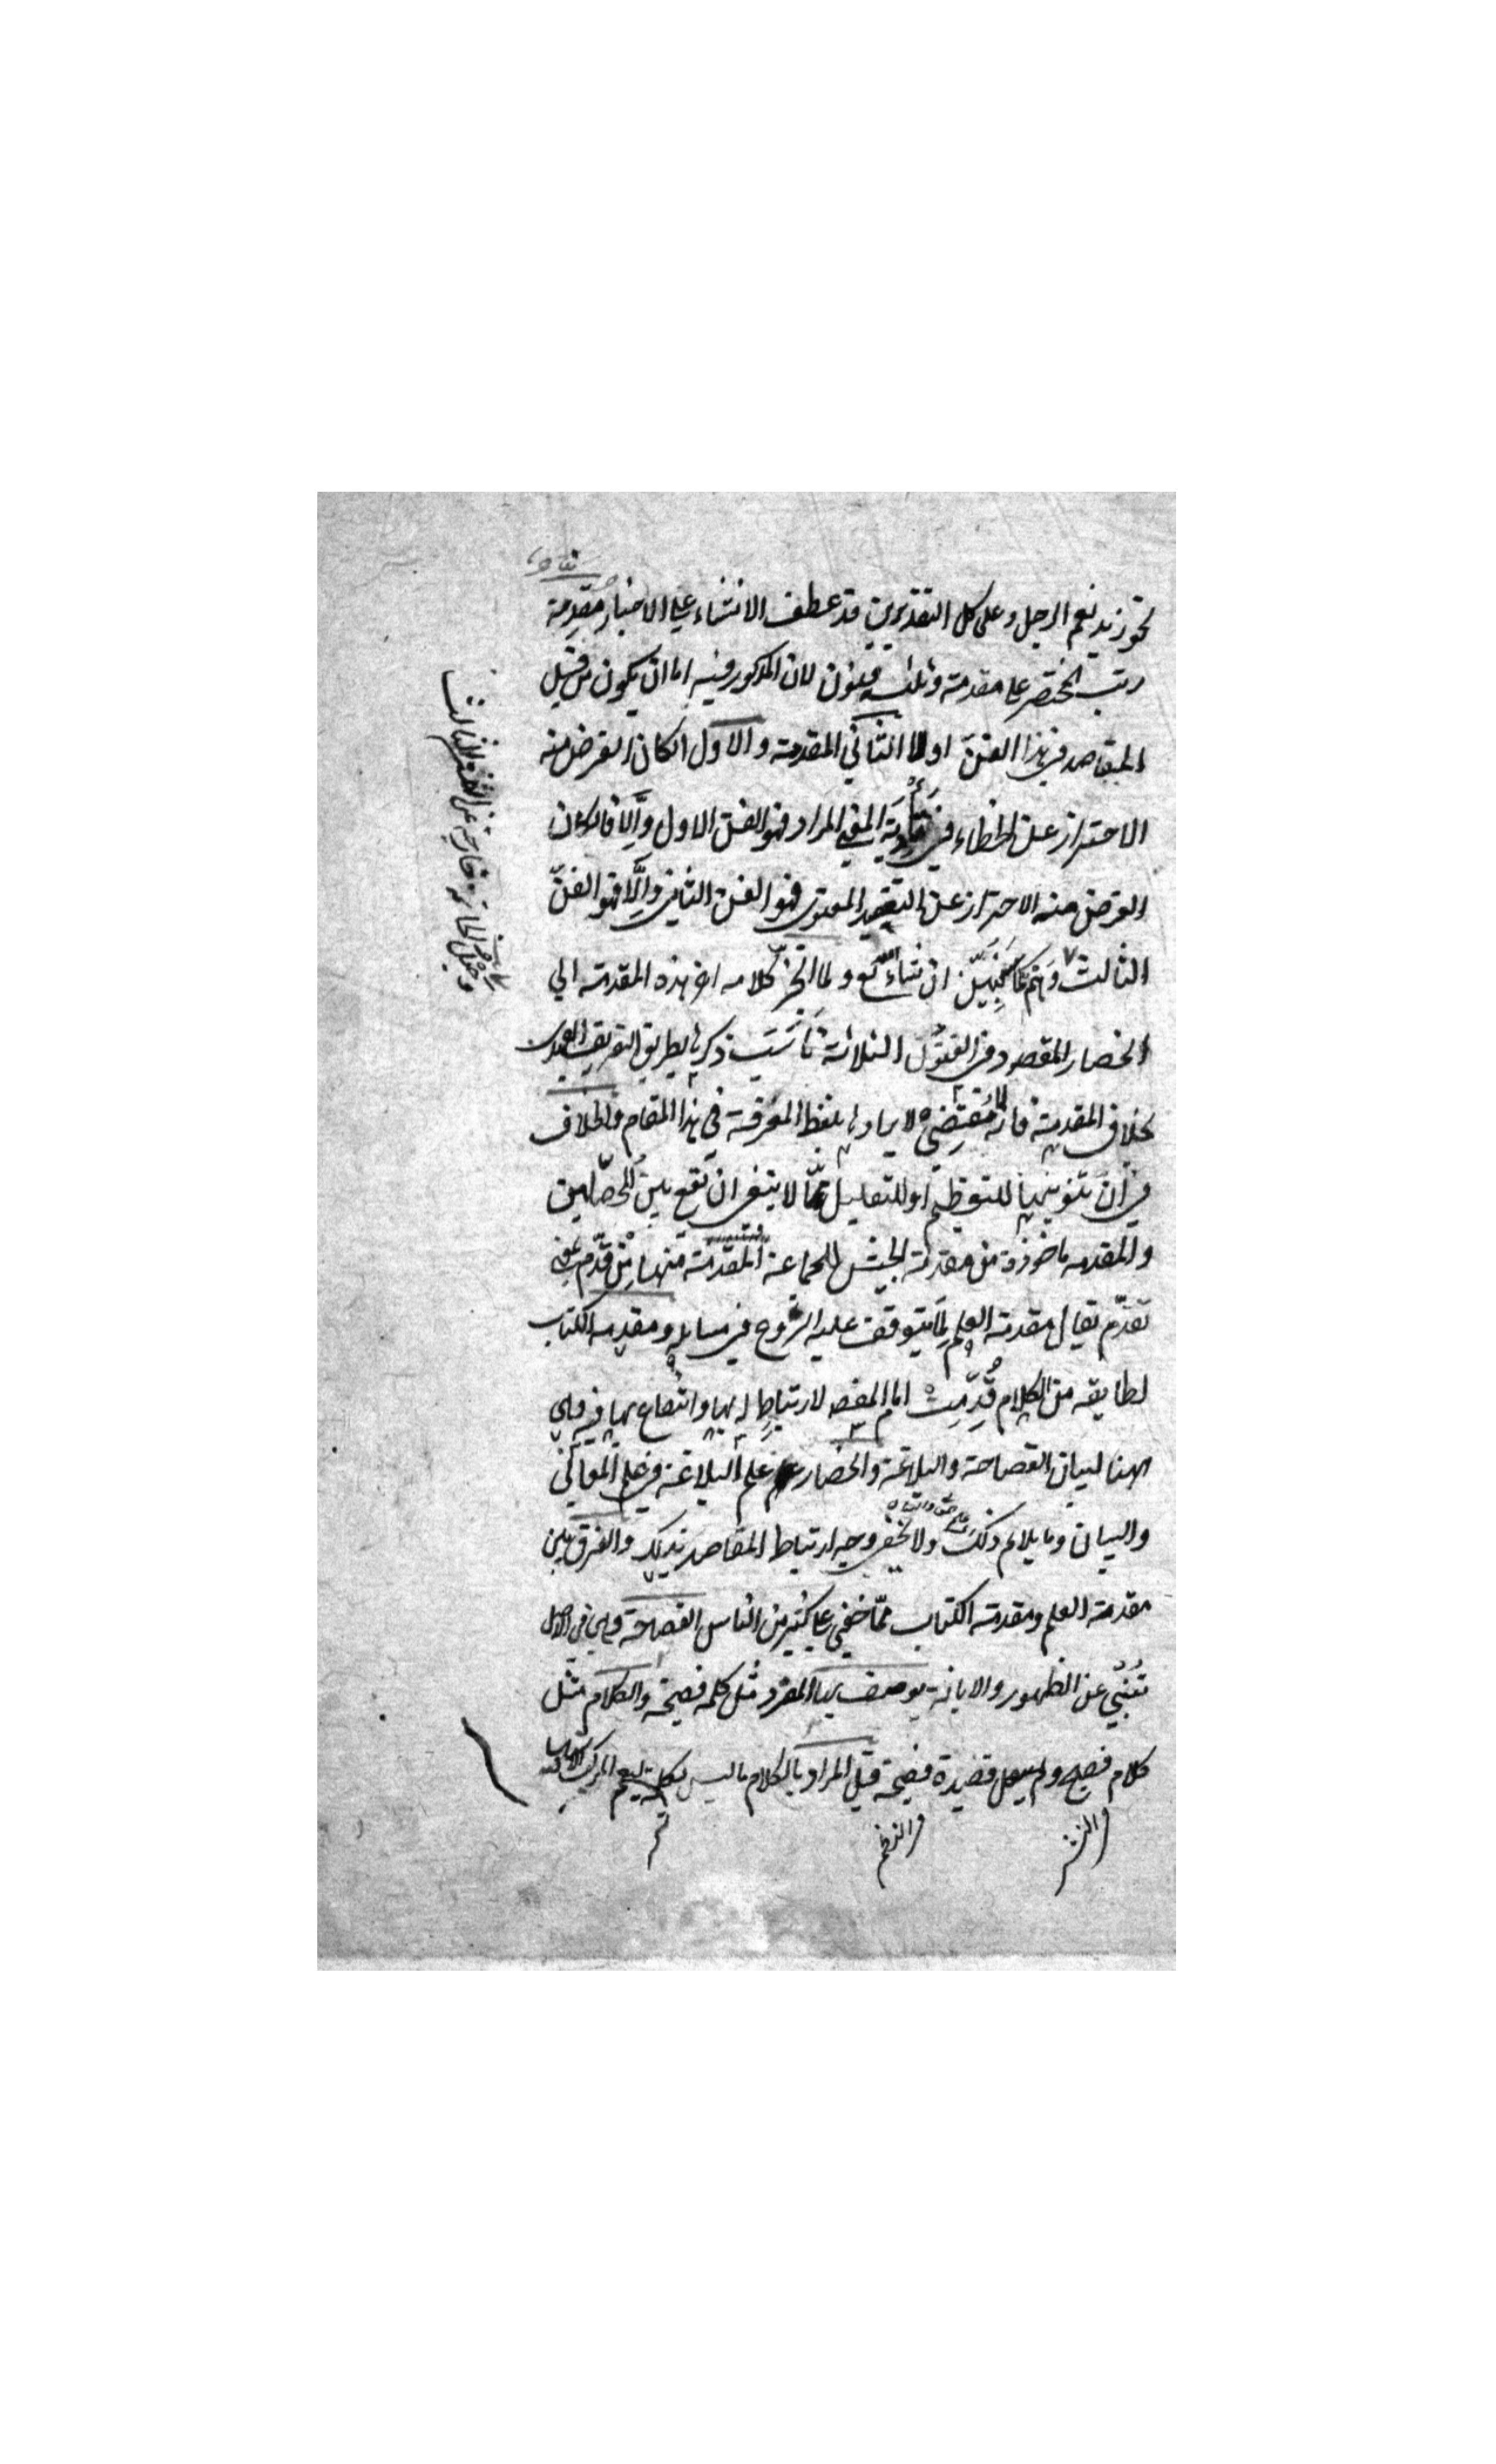 نحو زيد نعم الرجل وعلى كل التقديرين قد عطف الانشاء على الاخبار مقدمة
رتب المختصر على مقدمة وثلثة فنون لان المذكور فيه اما ان يكون من قبيل
المقاصد في هذا الفن اولا الثاني المقدمة والاول ان كان الغرض منه
الاحتراز عن الخطاء في تأدية المعنى المراد فهو الفن الاول وإلّا فان كان
الغرض منه الاحتراز عن التعقيد المعنوي فهو الفن الثاني وإلّا فهو الفن
الثالث
وجعل الخاتمة خارجة عن الفن الثالث
وهم كما سنبيّن ان شاء الله تع ولما انجرّ كلامه في اخر هذه المقدمة الى
انحصار المقصود في الفنون الثلاثة ناسب ذكرها بطريق التعريف العهدي
بخلاف المقدمة فانه لا مقتضى لايرادها بلفظ المعرفة في هذا المقام والخلاف
في أن تنوينها للتعظيم او للتقليل ممّا لا ينبغي ان تقع بين المحصّلين
والمقدمه ماخوذة من مقدمة الجيش للجماعة المتقدمة منها من قدّم بمعنى
تقدّم يقال مقدمة العلم لما يتوقف عليه الشروع في مسايله ومقدمه الكتاب
لطايفه من الكلام قُدِّمت امام المقصـ لارتباطٍ له بها وانتفاع بها فيه وهي
ههنا لبيان الفصاحة والبلاغة وانحصار علم البلاغة في علم المعاني
والبيان وما يلائم ذلك ولا يخفى وجه ارتباط المقاصد بذلك والفرق بين
مقدمة العلم ومقدمة الكتاب ممّا خفي على كثير من الناس الفصاحة وهي في الاصل
تُنبئ عن الظهور والابانة يوصف بها المفرد مثل كلمه فصيحة والكلام مثل
كلام فصيح وقصيدة فصيحة قيل المراد بالكلام ما ليس بكلمة ليعم المركب
والنثر
والنظم